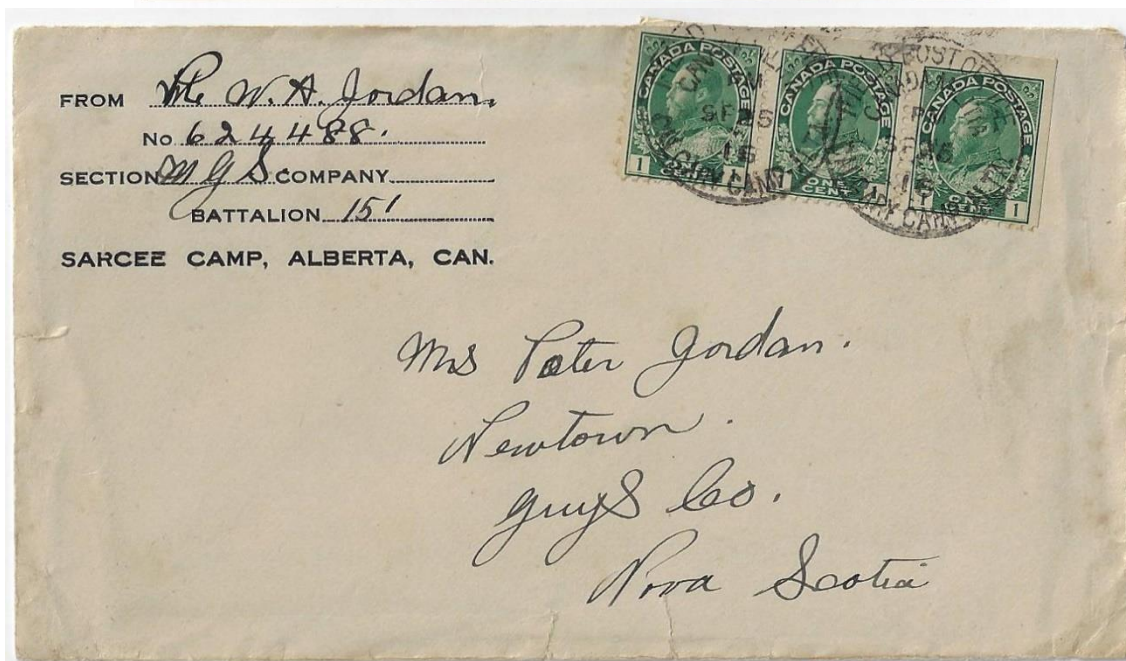 FROM Pte W. A. Jordan.
No 624488.
SECTION M G S. COMPANY
BATTALION 151
SARCEE CAMP, ALBERTA, CAN.
CANADA POSTAGE
1 ONE CENT
CANADA POSTAGE
1 ONE CENT 1
CANADA POSTAGE
ONE CENT 1
SP 26
16
CALGARY CAMP
Mrs Peter Jordan.
Newtown.
Guys Co.
Nova Scotia